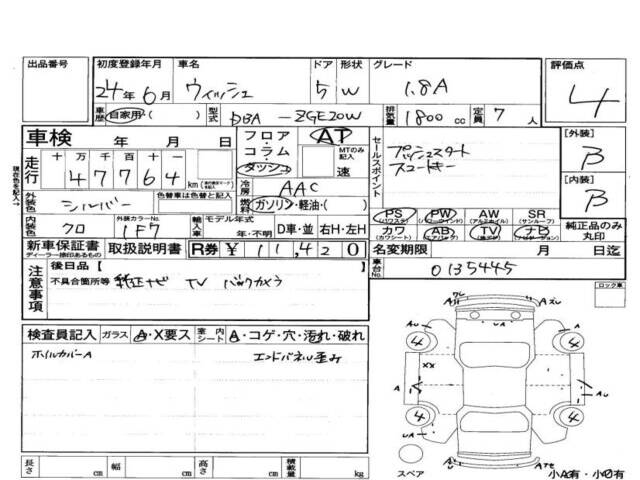 出品番号 初度登録年月 車名 ドア 形状 グレード 評価点
24年6月 ウィッシュ 5 W 1.8A 4
車歴 自家用・( ) 型式 DBA-ZGE20W 排気量 1800cc 定員 7人
車検 年 月 日 フロア・コラム・ダッシュ AT MTのみ記入 速 セールスポイント プッシュスタート スマートキー [外装] B
走行 十万千百十一 47764 km 冷房 AAC [内装] B
外装色 シルバー 色替車は色替と記入 燃料 ガソリン・軽油・( )
PS (パワステ) PW (パワーウィンド) AW (アルミホイル) SR (サンルーフ)
内装色 クロ 外装カラーNo. 1F7 輸入車 モデル年式 年・不明 D車・並 右H・左H カワ (カワシート) AB (エアバック) TV ナビ 純正品のみ丸印
新車保証書 ディーラー捺印あるもの 取扱説明書 R券 ¥11,420 名変期限 月 日迄
現在色を記入
車台No. 0135445
注意事項 後日品 [ ]
不具合箇所等 純正ナビ TV バックカメラ
ロック車
検査員記入 ガラス A・X要ス 室内シート A・コゲ・穴・汚れ・破れ
ホイルカバーA エンドパネル歪み
XX
A
4 4 4 4
スペア
小A有・小凹有
長さ cm 幅 cm 高さ cm 積載量 kg